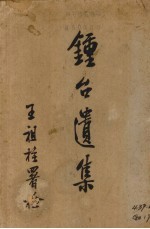 鍾台遺集
王祖桂署檢